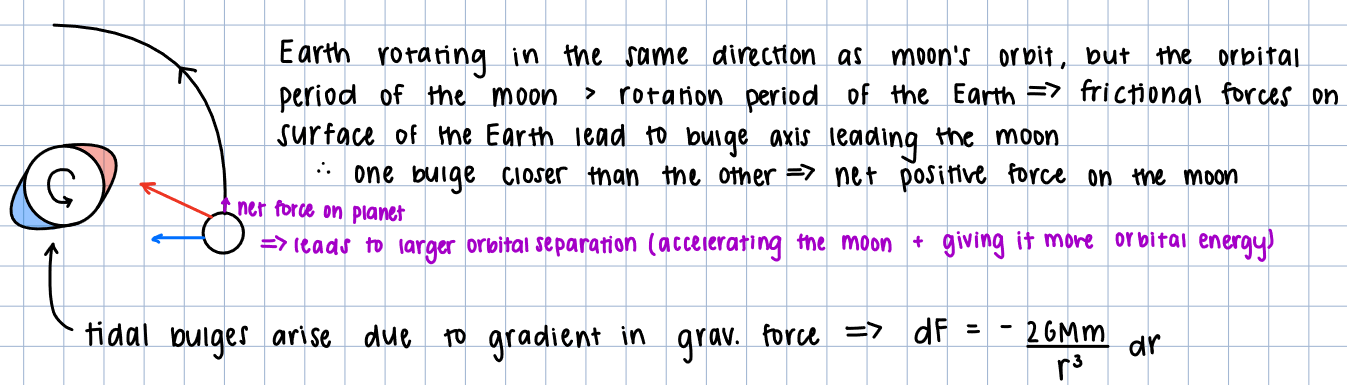 Earth rotating in the same direction as moon's orbit, but the orbital
period of the moon > rotation period of the Earth => frictional forces on
surface of the Earth lead to bulge axis leading the moon
∴ one bulge closer than the other => net positive force on the moon
net force on planet
=> leads to larger orbital separation (accelerating the moon + giving it more orbital energy)
tidal bulges arise due to gradient in grav. force => dF = - 2GMm/r³ dr